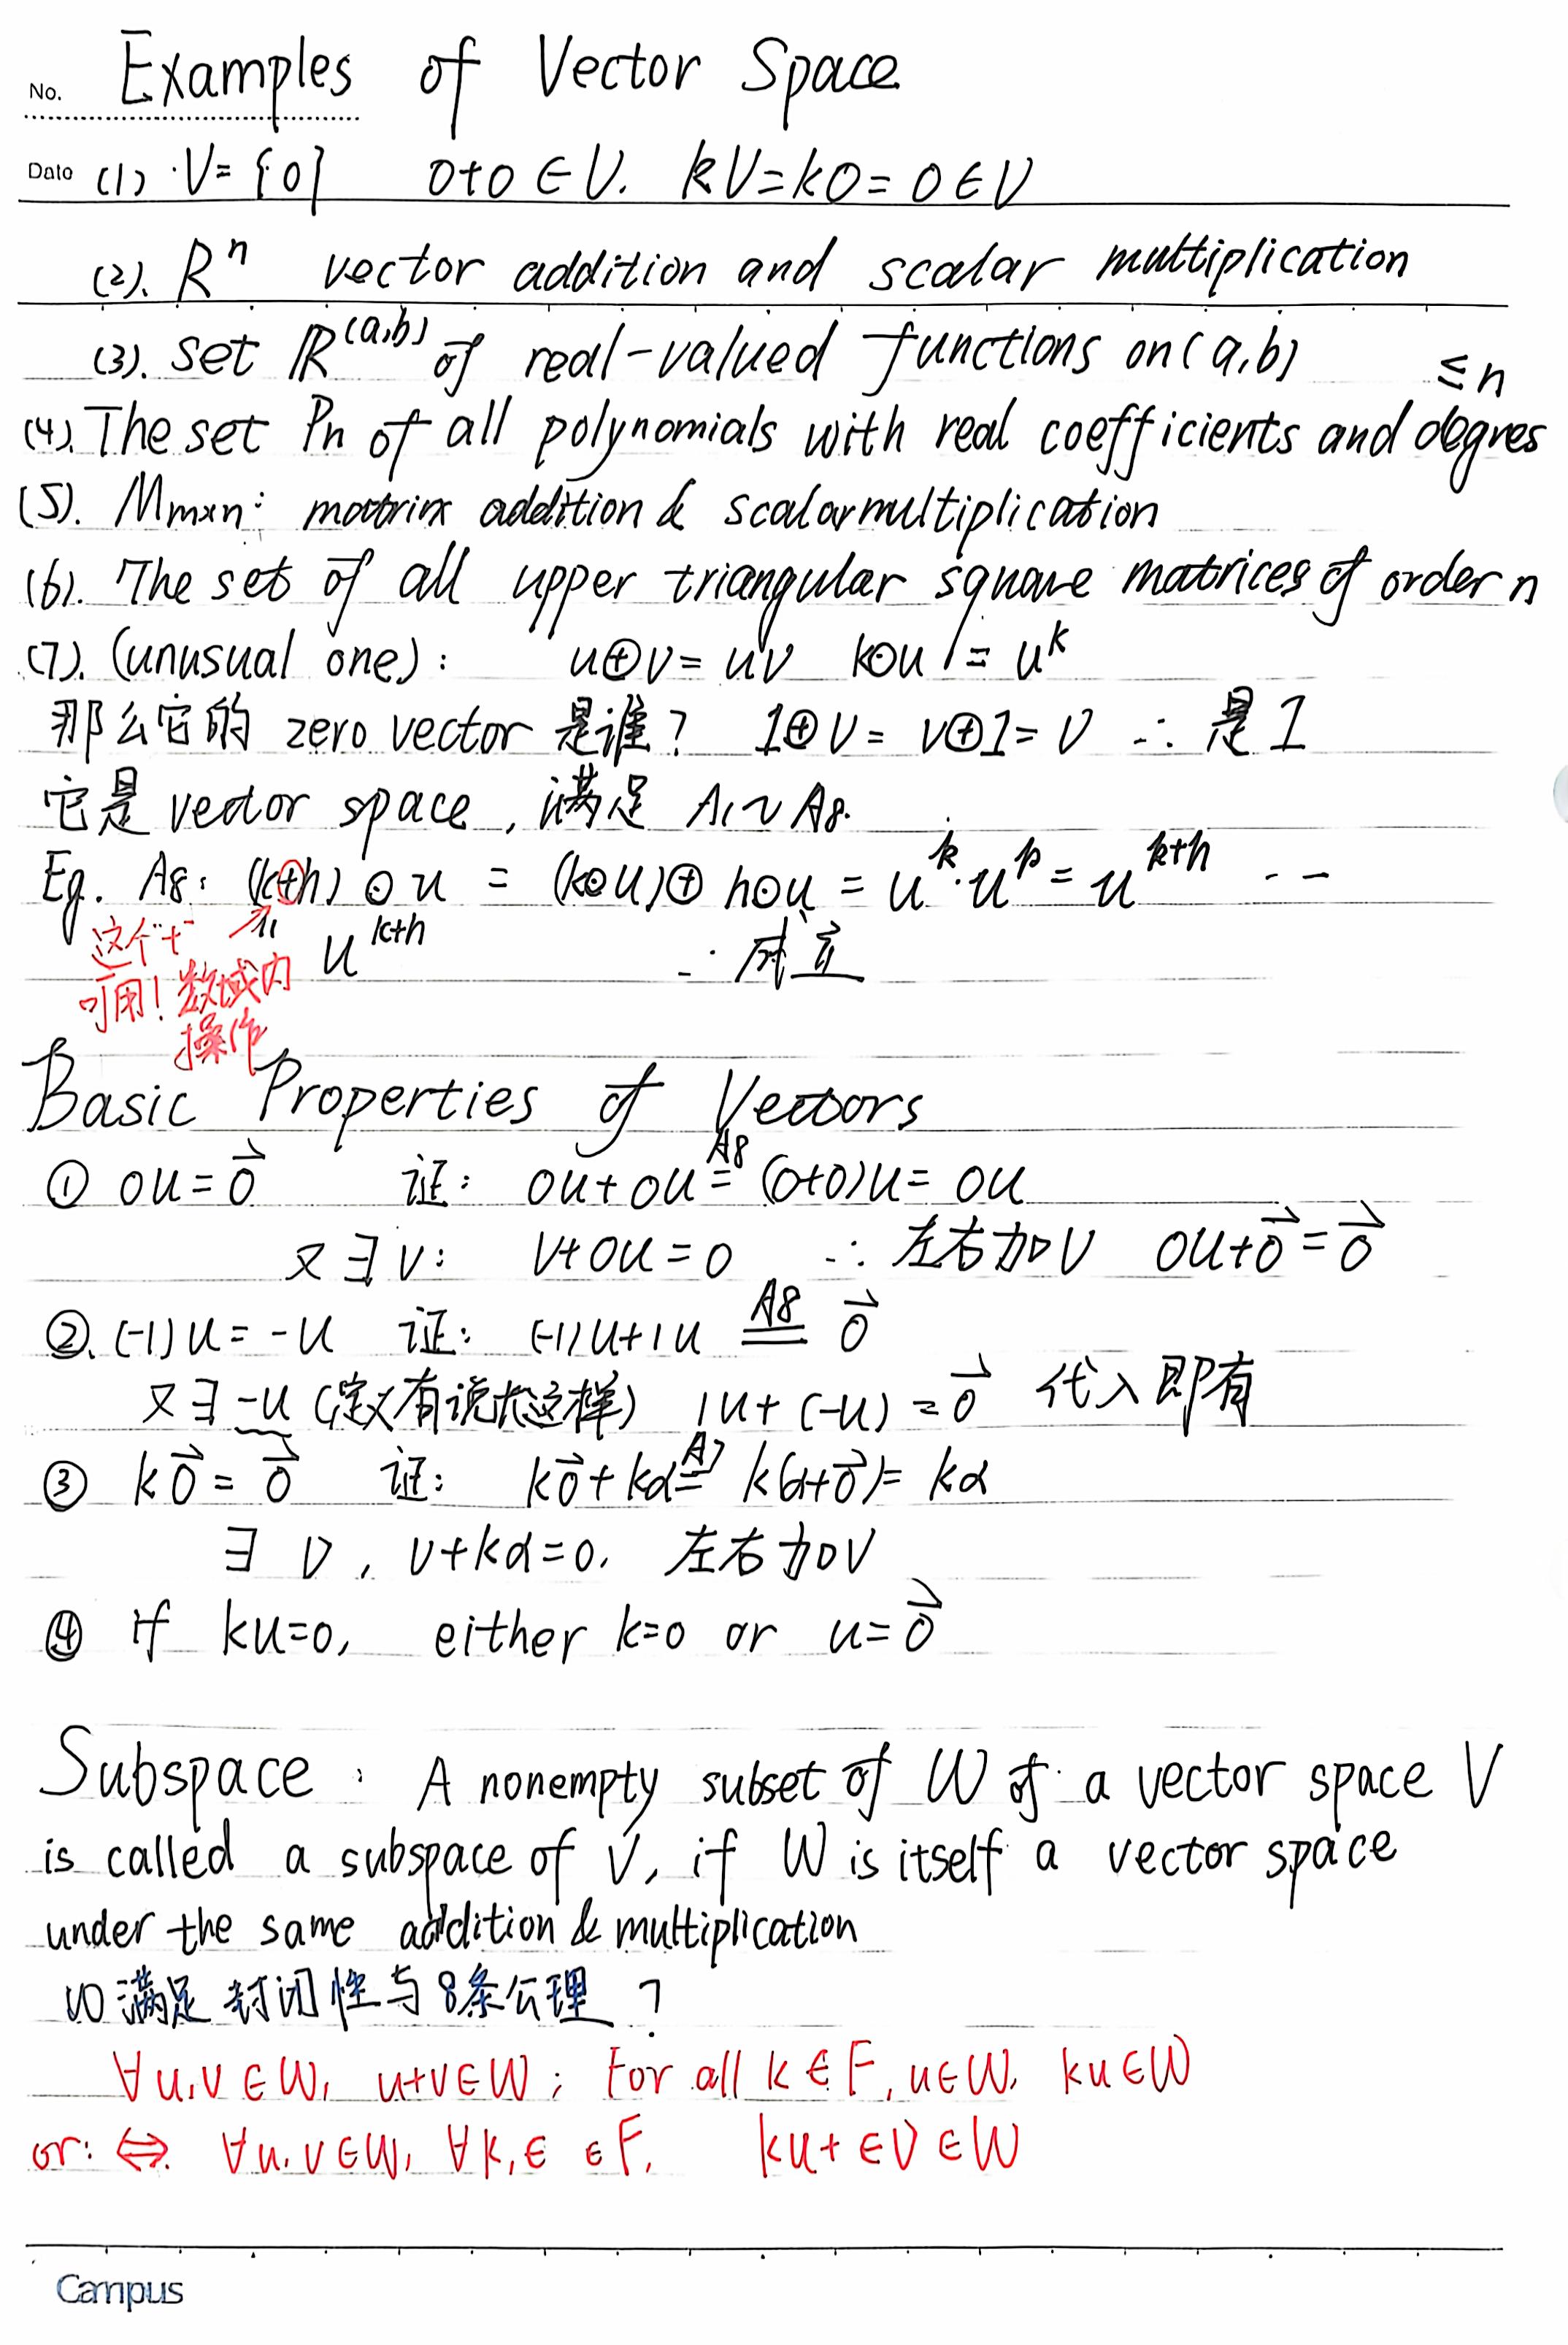 No. Examples of Vector Space
Date (1) ·V= {0} 0+0 ∈ V. kV=k0=0∈V
(2). Rⁿ vector addition and scalar multiplication
(3). set ℝ^(a,b) of real-valued functions on (a,b)
(4). The set Pn of all polynomials with real coefficients and degres ≤n
(5). Mm×n: matrix addition & scalar multiplication
(6). The set of all upper triangular square matrices of order n
(7). (unusual one): u⊕v= uv k⊙u = u^k
那么它的 zero vector 是谁? 1⊕v= v⊕1= v ∴ 是 1
它是 vector space, 满足 A1~A8.
Eg. A8: (k+h) ⊙ u = (k⊙u)⊕ h⊙u = u^k·u^h = u^k+h --
这个"+" 可用! 数域内操作
= u^k+h ∴ 成立
Basic Properties of Vectors
① 0u=0⃗ 证: 0u+0u =(A8) (0+0)u= 0u
又∃ v: v+0u=0 ∴ 左右加v 0u+0⃗=0⃗
②. (-1)u= -u 证: (-1)u+1u =(A8) 0⃗
又∃ -u (定义有说长这样) 1u+(-u)=0⃗ 代入即有
③ k0⃗= 0⃗ 证: k0⃗+kα =(A7) k(α+0⃗)= kα
∃ v, v+kα=0. 左右加v
④ if ku=0, either k=0 or u=0⃗
Subspace: A nonempty subset of W of a vector space V
is called a subspace of V, if W is itself a vector space
under the same addition & multiplication
(1) 满足封闭性与8条公理 ?
∀u,v∈W, u+v∈W; For all k∈F, u∈W, ku∈W
or: ⇔ ∀u,v∈W, ∀k,∈ ∈F, ku+∈v∈W
Campus